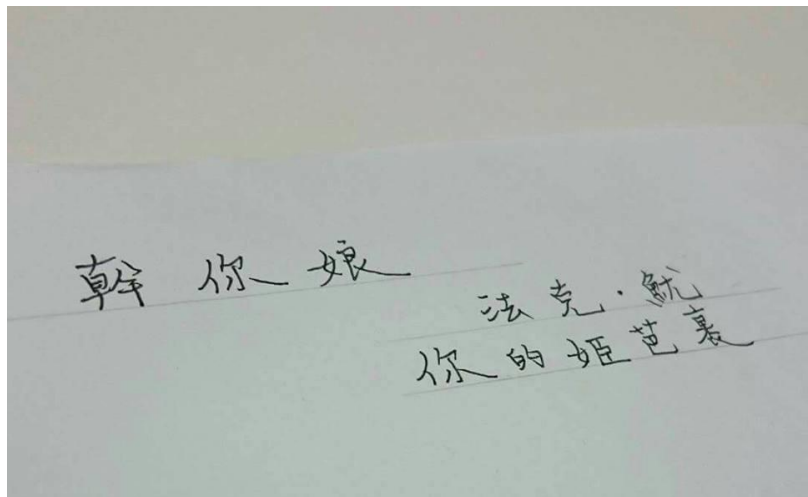 幹你娘
法克·魷
你的姬芭裏